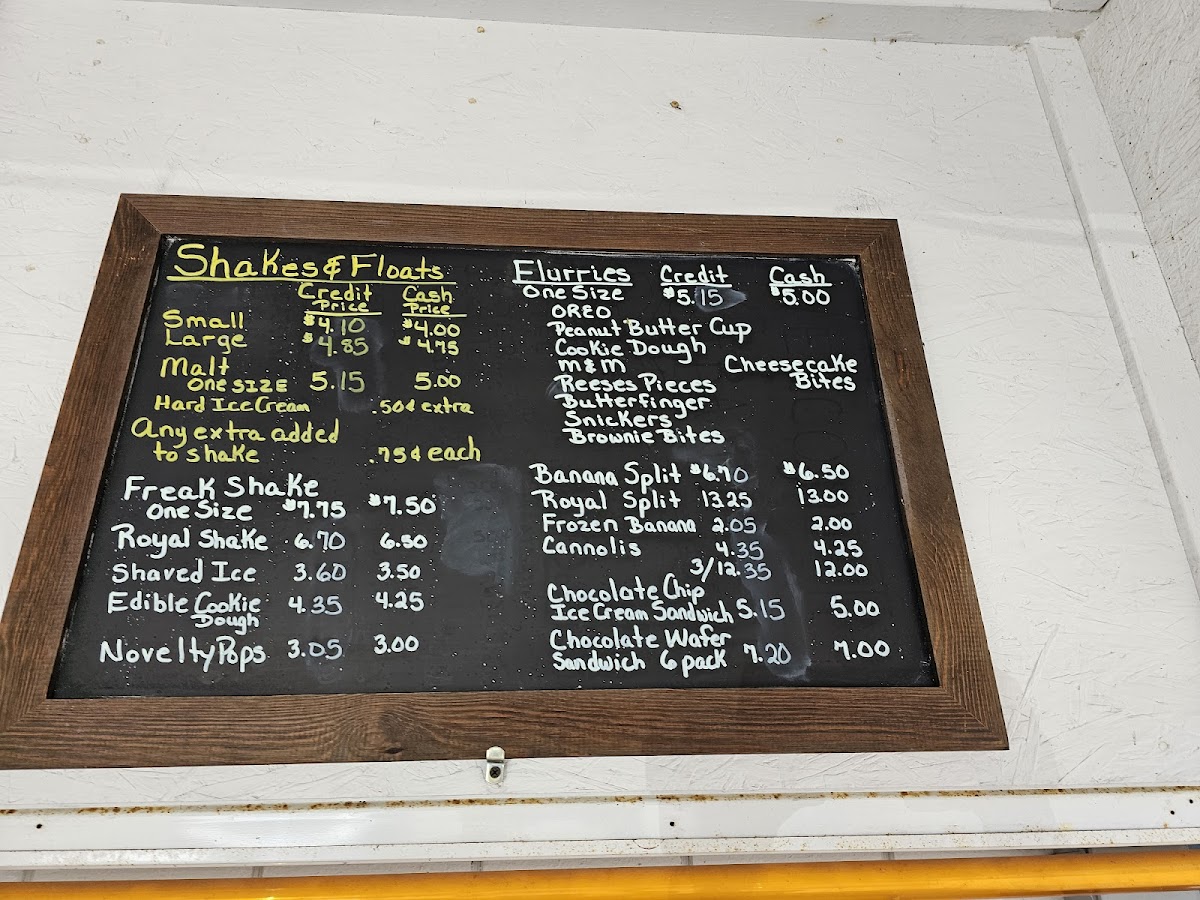 Shakes & Floats
Credit Price Cash Price
Small $4.10 $4.00
Large $4.85 $4.75
Malt
One SIZE 5.15 5.00
Hard Ice Cream .50¢ extra
Any extra added
to shake .75¢ each
Freak Shake
One Size $7.75 $7.50
Royal Shake 6.70 6.50
Shaved Ice 3.60 3.50
Edible Cookie
Dough 4.35 4.25
Novelty Pops 3.05 3.00
Flurries Credit Cash
One Size $5.15 $5.00
OREO
Peanut Butter Cup
Cookie Dough
M&M Cheesecake
Reeses Pieces Bites
Butterfinger
Snickers
Brownie Bites
Banana Split $6.70 $6.50
Royal Split 13.25 13.00
Frozen Banana 2.05 2.00
Cannolis 4.35 4.25
3/12.35 12.00
Chocolate Chip
Ice Cream Sandwich 5.15 5.00
Chocolate Wafer
Sandwich 6 pack 7.20 7.00